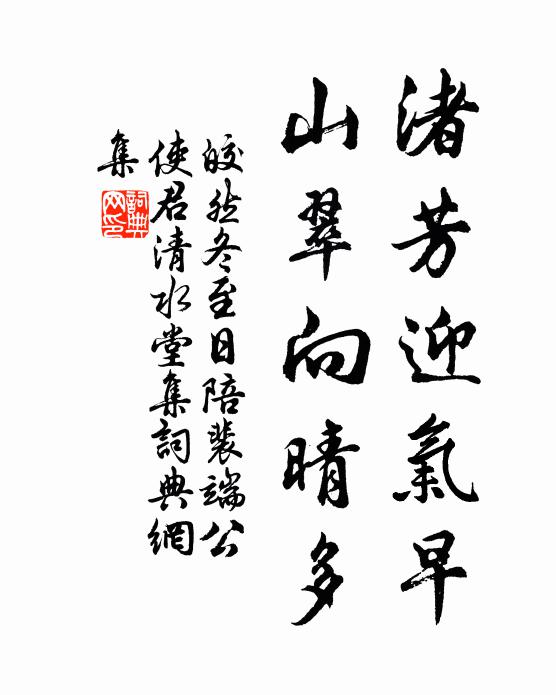 渚芳迎氣早
山翠向晴多
皎然冬至日陪裴端公
使君清水堂集詞典網
集
詞典
网印